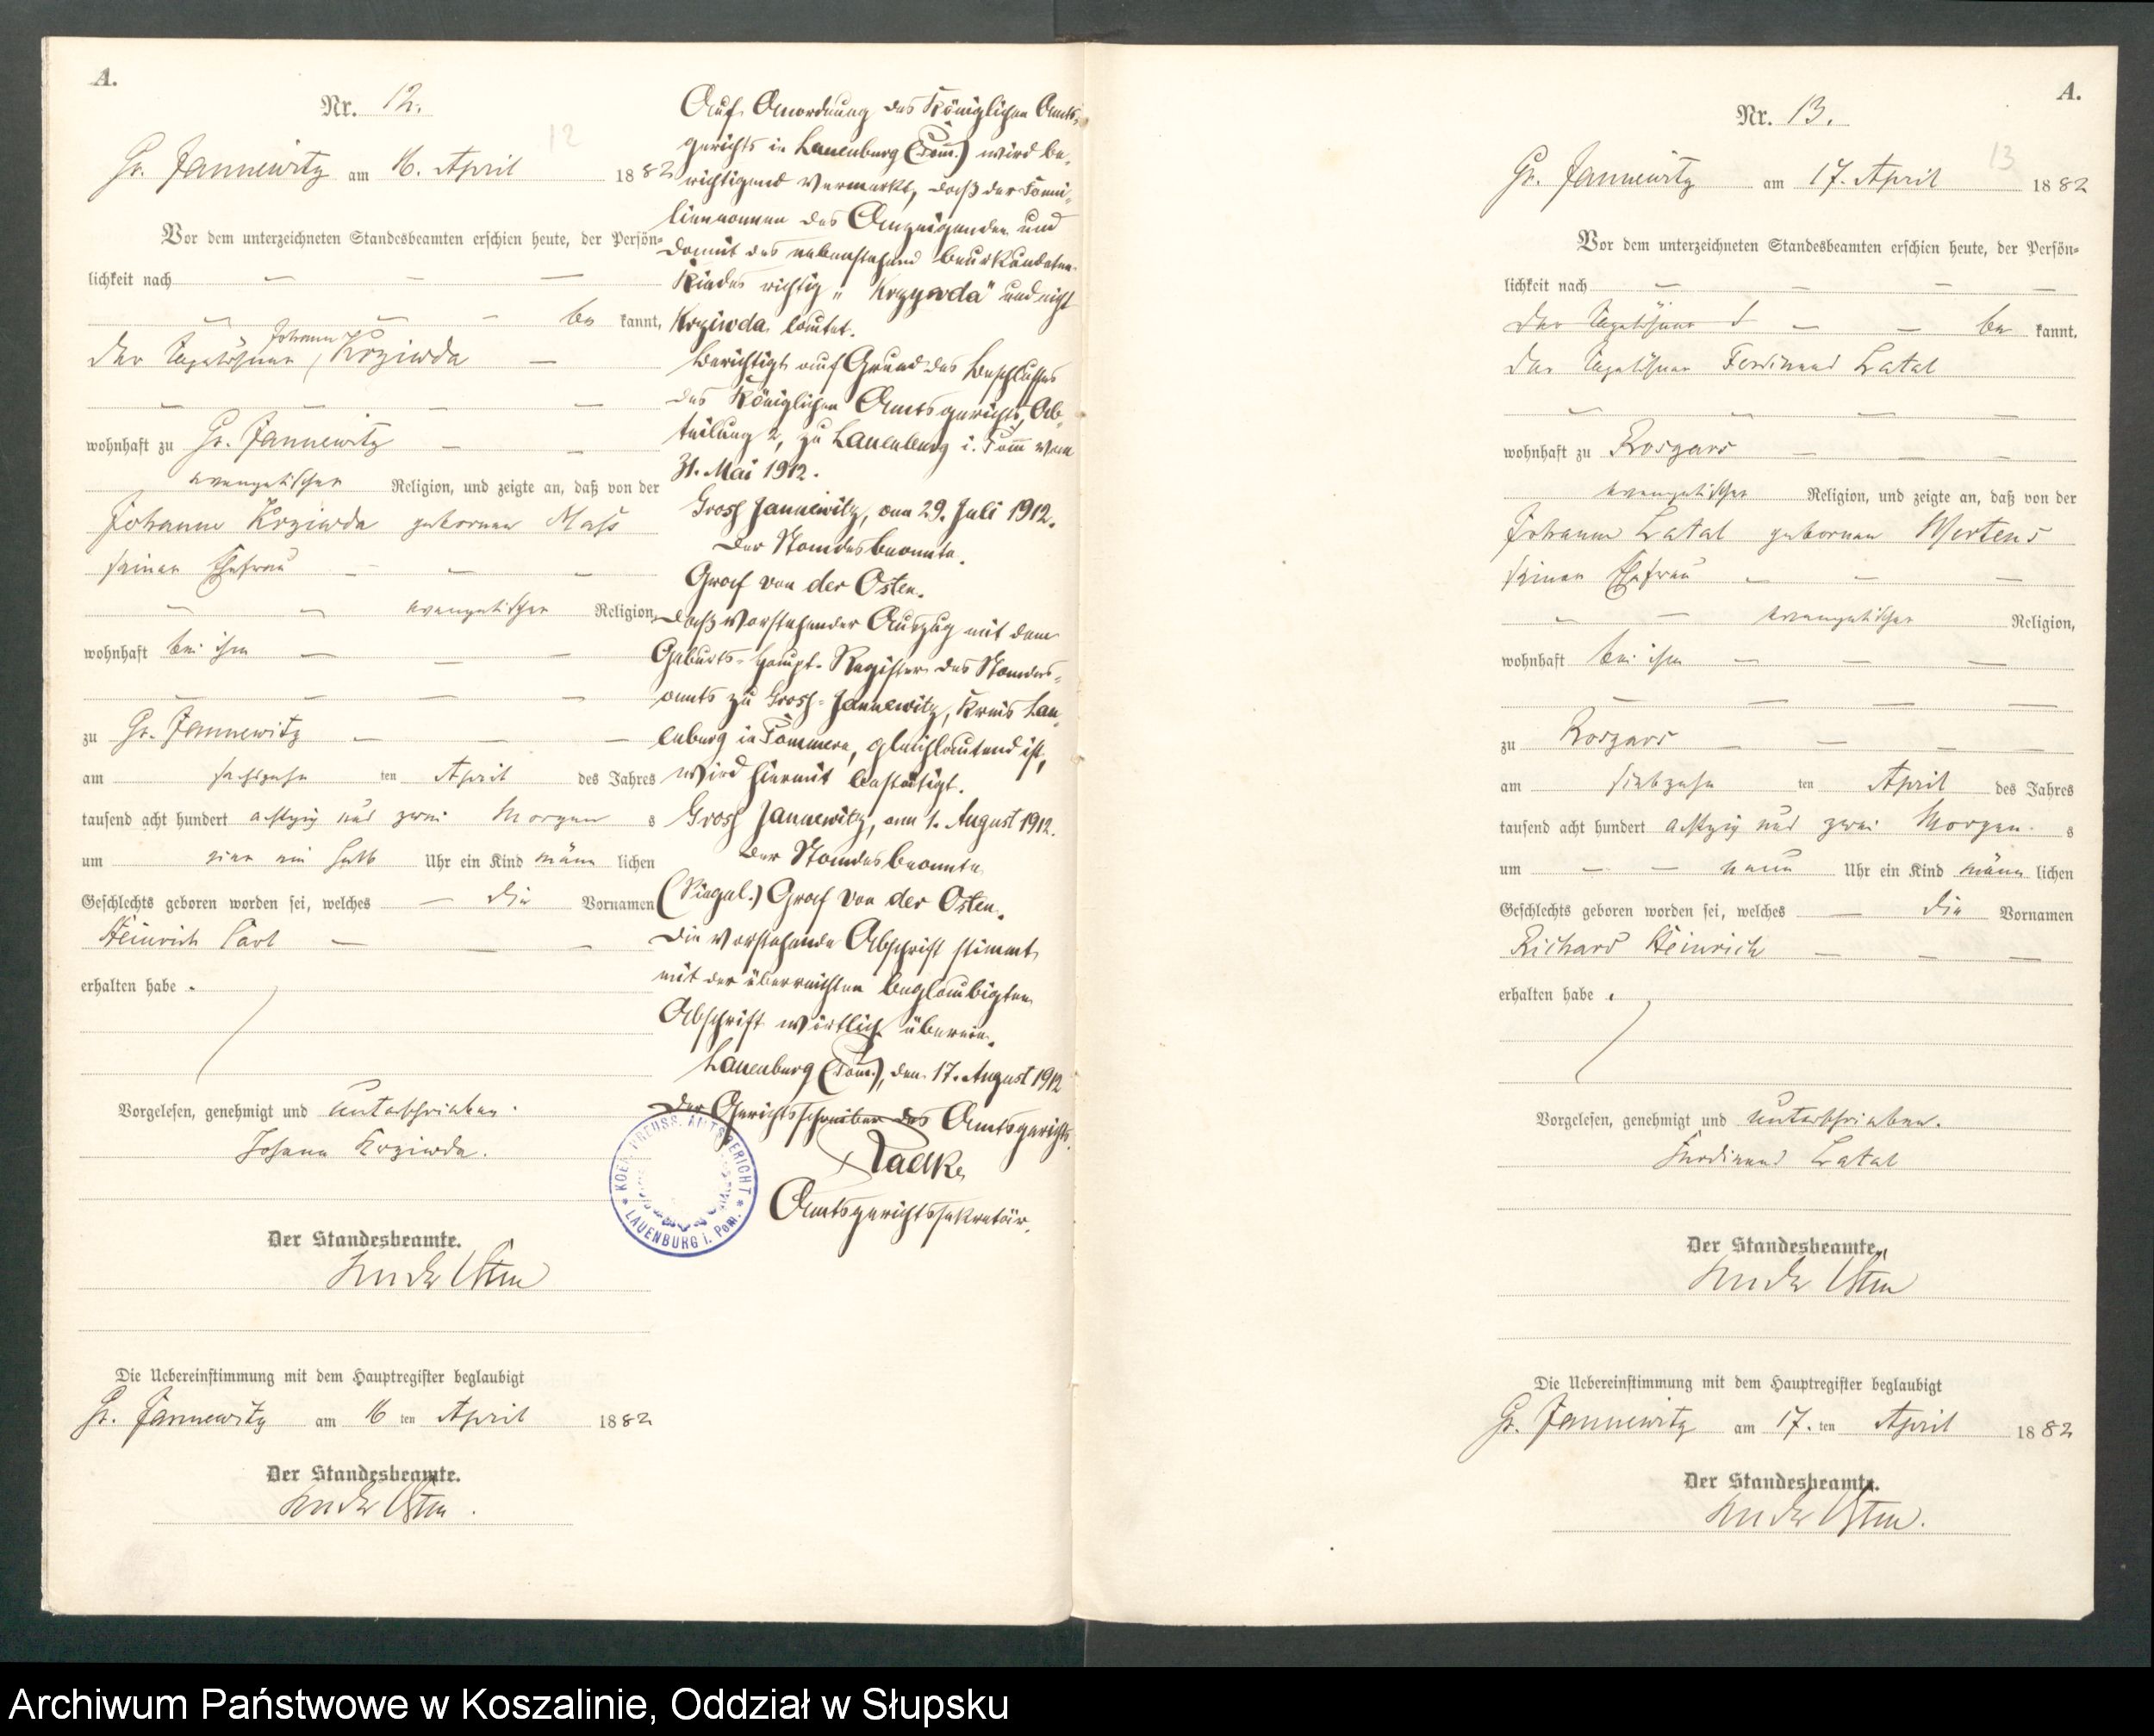 A.
Nr. 12.
12
Gr. Jannewitz am 16. April 1882
Vor dem unterzeichneten Standesbeamten erschien heute, der Persön-
lichkeit nach
be kannt,
Johann
der Tagelöhner Krziwda
wohnhaft zu Gr. Jannewitz
evangelischer Religion, und zeigte an, daß von der
Johanne Krziwda geborenen Mass
seiner Ehefrau
evangelischer Religion,
wohnhaft bei ihm
zu Gr. Jannewitz
am sechszehn ten April des Jahres
tausend acht hundert achtzig und zwei Morgens
um vier ein halb Uhr ein Kind männ lichen
Geschlechts geboren worden sei, welches die Vornamen
Heinrich Carl
erhalten habe.
Vorgelesen, genehmigt und unterschrieben.
Johann Krziwda.
Der Standesbeamte.
der Osten
Die Uebereinstimmung mit dem Hauptregister beglaubigt
Gr. Jannewitz am 16 ten April 1882
Der Standesbeamte.
der Osten.
Auf Anordnung des Königlichen Amts-
gerichts in Lauenburg (Pom.) wird be-
richtigend vermerkt, daß der Fami-
liennamen des Anzeigenden und
damit des nebenstehend beurkundeten
Kindes richtig „Krzywda" und nicht
Krziwda lautet.
Berichtigt auf Grund des Beschlusses
des Königlichen Amtsgerichts, Ab-
teilung 2, zu Lauenburg i. Pom vom
31. Mai 1912.
Gross Jannewitz, am 29. Juli 1912.
Der Standesbeamte.
Graf von der Osten.
Daß vorstehender Auszug mit dem
Geburts-Haupt-Register des Standes-
amts zu Gross-Jannewitz, Kreis Lau-
enburg in Pommern, gleichlautend ist,
wird hiermit bestätigt.
Gross Jannewitz, am 1. August 1912.
Der Standesbeamte
(Siegel.) Graf von der Osten.
Die vorstehende Abschrift stimmt
mit der überreichten beglaubigten
Abschrift wörtlich überein.
Lauenburg (Pom.), den 17. August 1912
Der Gerichtsschreiber des Amtsgerichts.
Radke
Amtsgerichtssekretär.
KOEN. PREUSS. AMTSGERICHT
* LAUENBURG i. Pom. *
A.
Nr. 13.
13
Gr. Jannewitz am 17. April 1882
Vor dem unterzeichneten Standesbeamten erschien heute, der Persön-
lichkeit nach
der Tagelöhner be kannt,
der Tagelöhner Ferdinand Latal
wohnhaft zu Rosgars
evangelischer Religion, und zeigte an, daß von der
Johanne Latal geborenen Mertens
seiner Ehefrau
evangelischer Religion,
wohnhaft bei ihm
zu Rosgars
am siebzehn ten April des Jahres
tausend acht hundert achtzig und zwei Morgens
um neun Uhr ein Kind männ lichen
Geschlechts geboren worden sei, welches die Vornamen
Richard Heinrich
erhalten habe.
Vorgelesen, genehmigt und unterschrieben.
Ferdinand Latal
Der Standesbeamte.
der Osten
Die Uebereinstimmung mit dem Hauptregister beglaubigt
Gr. Jannewitz am 17. ten April 1882
Der Standesbeamte.
der Osten.
Archiwum Państwowe w Koszalinie, Oddział w Słupsku